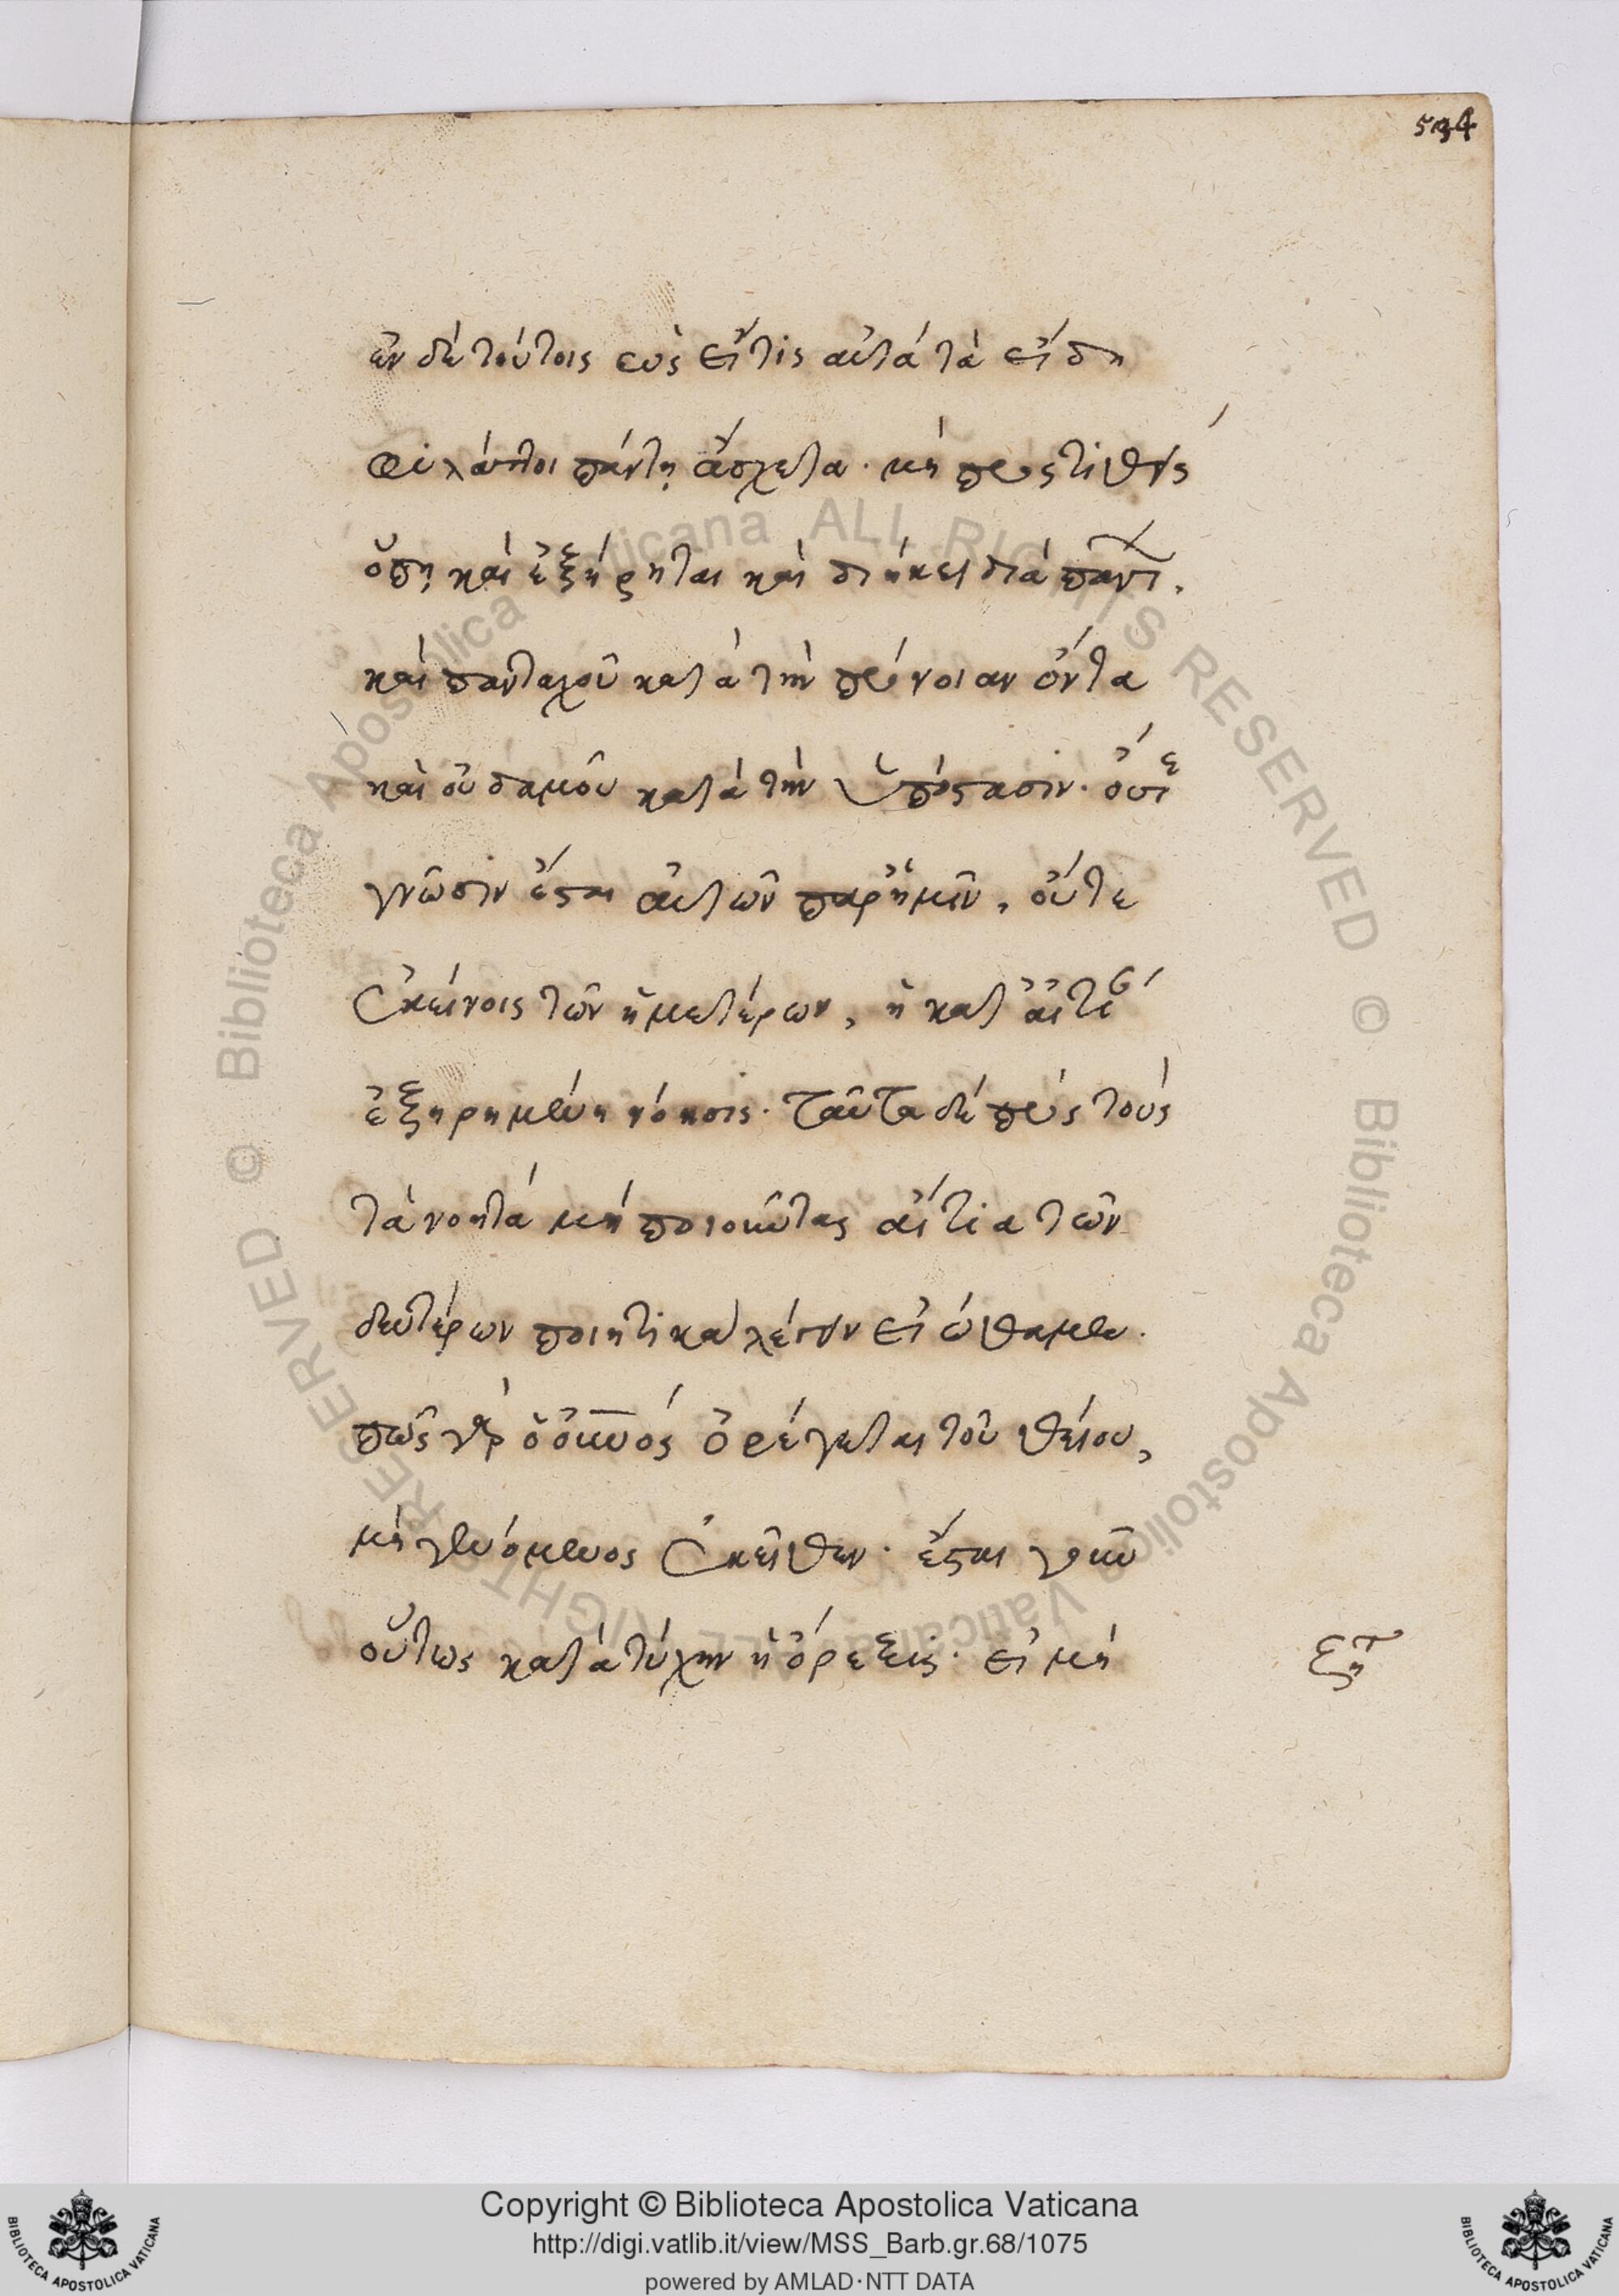 534
ἐν δὲ τούτοις εὐθὺς εἴ τις αὐτὰ τὰ εἴδη
φυλάττοι πάντῃ ἄσχετα· μὴ προστιθεὶς
ὅπῃ καὶ ἐξῄρηται καὶ διήκει διὰ πάντων,
καὶ πανταχοῦ κατὰ τὴν πρόνοιαν ὄντα
καὶ οὐδαμοῦ κατὰ τὴν ὑπόστασιν· οὔτε
γνῶσιν ἔσται αὐτῶν παρ' ἡμῖν, οὔτε
ἐκείνοις τῶν ἡμετέρων, ἡ κατ' αἰτίαν
ἐξηρημένη νόησις· ταῦτα δὲ πρὸς τοὺς
τὰ νοητὰ μὴ ποιοῦντας αἴτια τῶν
δευτέρων ποιητικὰ λέγειν εἰώθαμεν·
πῶς γὰρ ὁ οὐνος ὀρέγεται τοῦ θείου,
μὴ γενόμενος ἐκεῖθεν· ἔσται γὰρ οὖν
οὕτως κατὰ τύχην ἡ ὄρεξις· εἰ μὴ
Copyright © Biblioteca Apostolica Vaticana
http://digi.vatlib.it/view/MSS_Barb.gr.68/1075
powered by AMLAD·NTT DATA